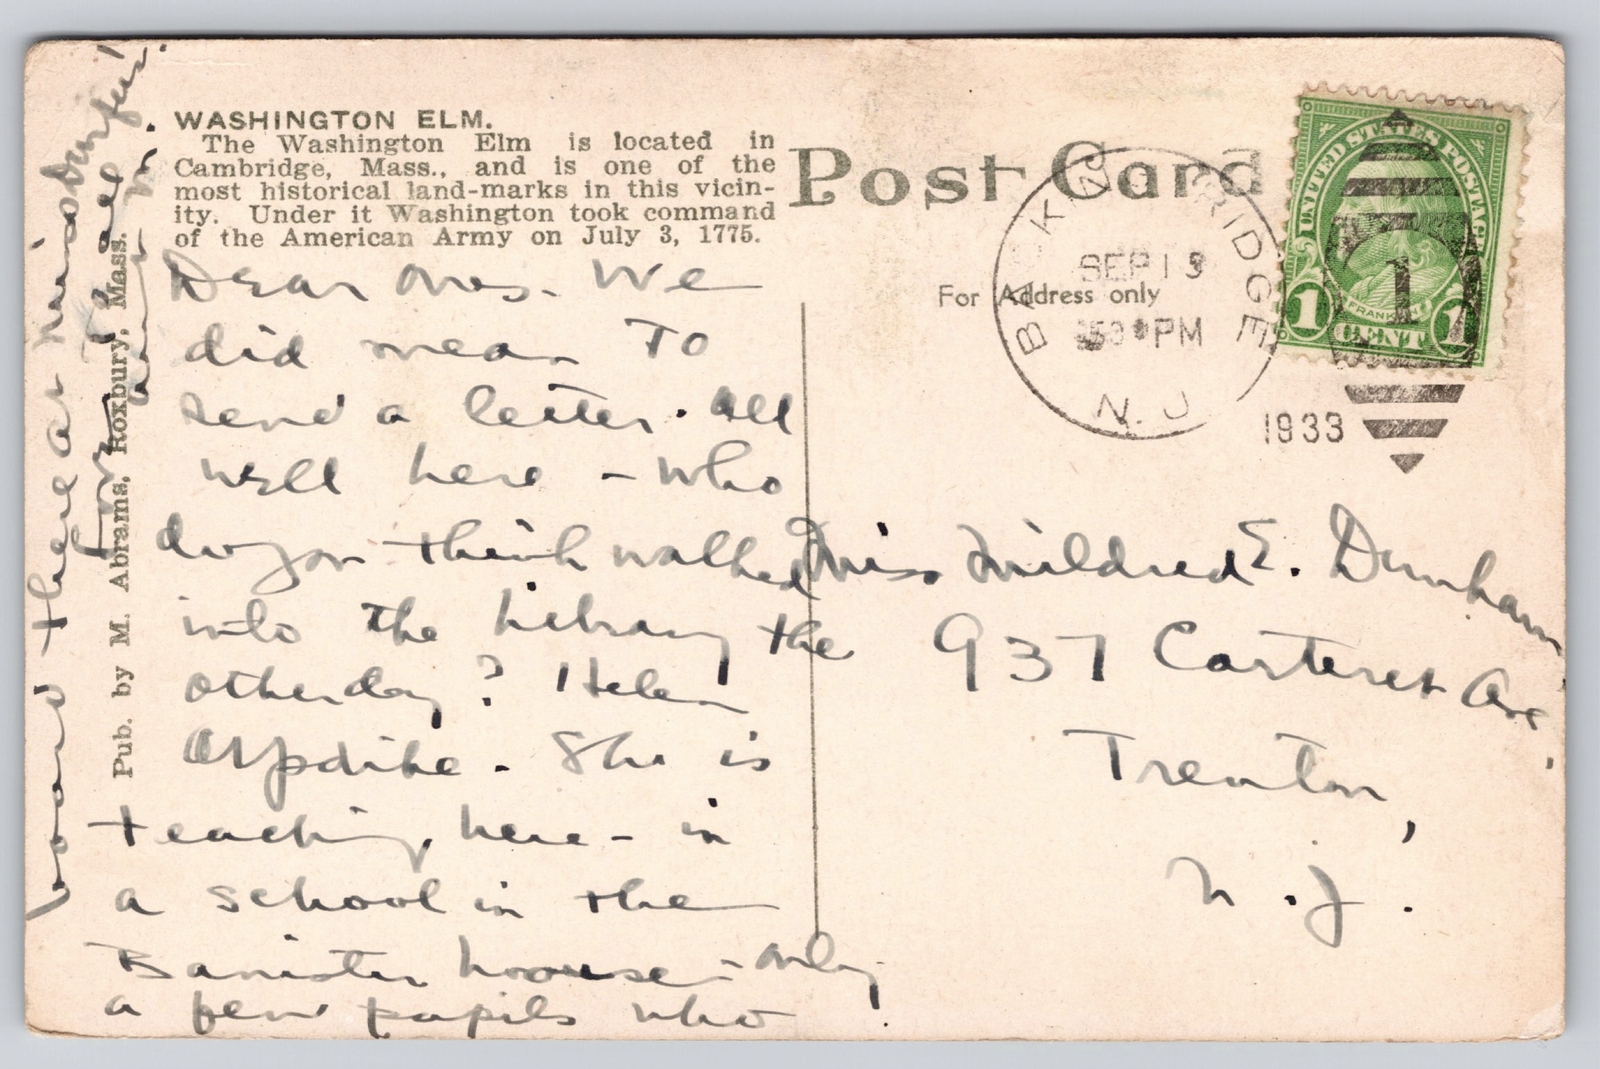 WASHINGTON ELM.
The Washington Elm is located in
Cambridge, Mass., and is one of the
most historical land-marks in this vicin-
ity. Under it Washington took command
of the American Army on July 3, 1775.
Post Card
For Address only
BASKING RIDGE
N.J.
SEP 13
PM
1933
UNITED STATES POSTAGE
1 1
FRANKLIN
CENT
Pub. by M. Abrams, Roxbury, Mass.
Dear Ones. We
did mean to
send a letter. All
well here - Who
do you think walked
into the Library the
other day? Helen
Updike. She is
teaching here - in
a school in the
Banister house - only
a few pupils who
board there at Miss
Miss Mildred E. Dunham
937 Carteret Ave.
Trenton,
N.J.